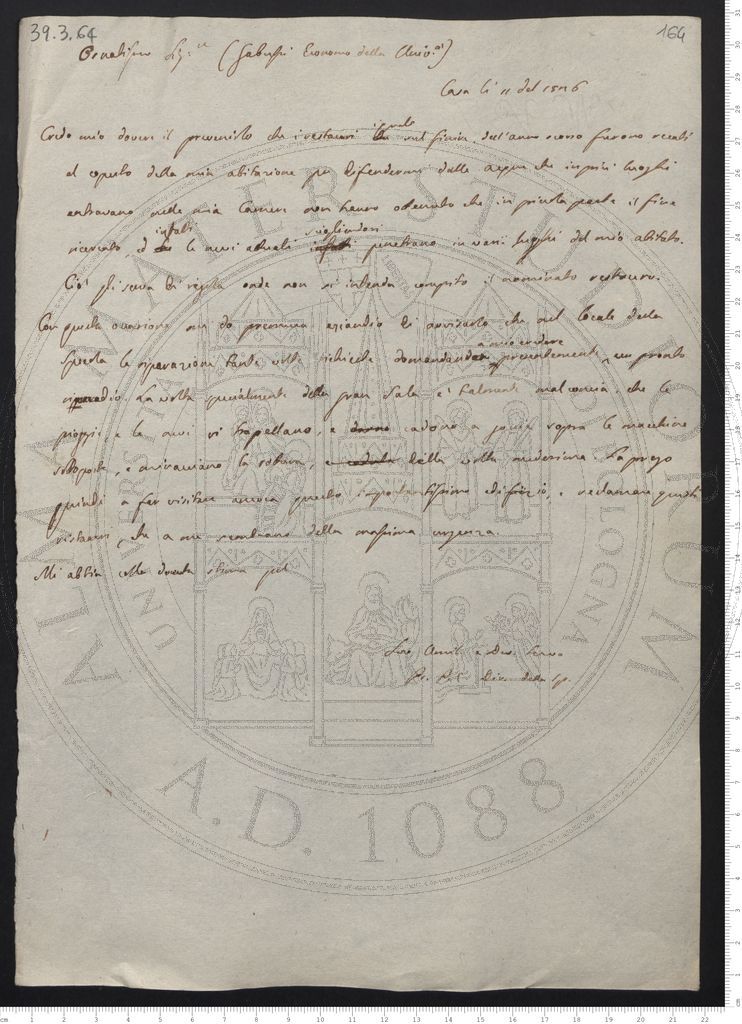 39.3.64
164
Ornatissimo Sig.re (Gabussi Economo della Univ.tà)
Casa li 11 del
Credo mio dovere il prevenirlo che i restauri i quali sul finire dell'anno scorso furono recati
al coperto della mia abitazione per difendermi dalle acque che in più luoghi
entravano nelle mia Camere non hanno ottenuto che in piccola parte il fine
ricercato, ed infatti le nevi attuali sciogliendosi penetrano in varii luoghi del mio abitato.
Ciò gli serva di regola onde non si intenda compito il nominato restauro.
Con questa occasione mi do premura eziandio di avvisarlo che nel locale della
Specola le riparazioni tante volte richieste domandano a mio credere presentemente un pronto
riparo. La volta specialmente della gran Sala è talmente malconcia, che le
pioggie e le nevi vi trapellano, e cadono a goccie sopra le macchine
sottoposte, e minacciano la rovina della volta medesima. La prego
quindi a far visitare ancora questo importantissimo edifizio, e reclamare questi
ristauri, che a me sembrano della massima urgenza.
Mi abbia colla dovuta stima pel
Suo Aff. e Dev. Servo
della Sp.
ALMA MATER STUDIORUM
UNIVERSITÀ DI BOLOGNA
A.D. 1088